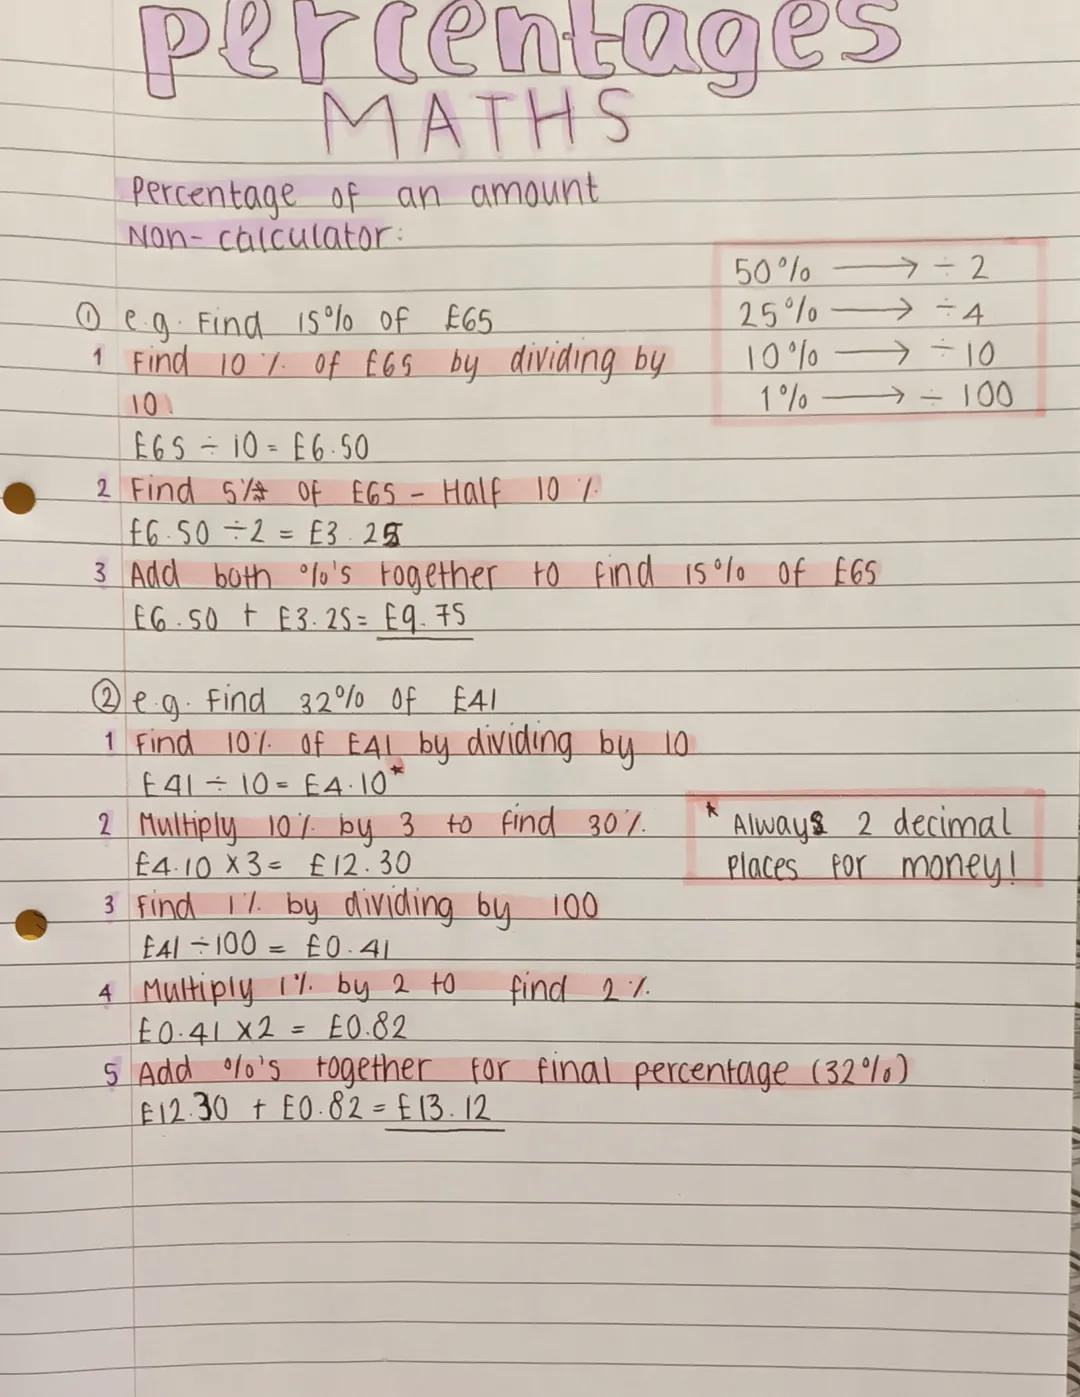 percentages
MATHS
Percentage of an amount
Non-calculator:
50% → ÷ 2
25% → ÷ 4
10% → ÷ 10
1% → ÷ 100
① e.g. Find 15% of £65
1 Find 10% of £65 by dividing by
10
£65 ÷ 10 = £6.50
2 Find 5% of £65 - Half 10%
£6.50 ÷ 2 = £3.25
3 Add both %'s together to find 15% of £65
£6.50 + £3.25 = £9.75
② e.g. Find 32% of £41
1 Find 10% of £41 by dividing by 10
£41 ÷ 10 = £4.10*
2 Multiply 10% by 3 to find 30%.
£4.10 x3 = £12.30
* Always 2 decimal
places for money!
3 Find 1% by dividing by 100
£41 ÷ 100 = £0.41
4 Multiply 1% by 2 to find 2%.
£0.41 x2 = £0.82
5 Add %'s together for final percentage (32%)
£12.30 + £0.82 = £13.12